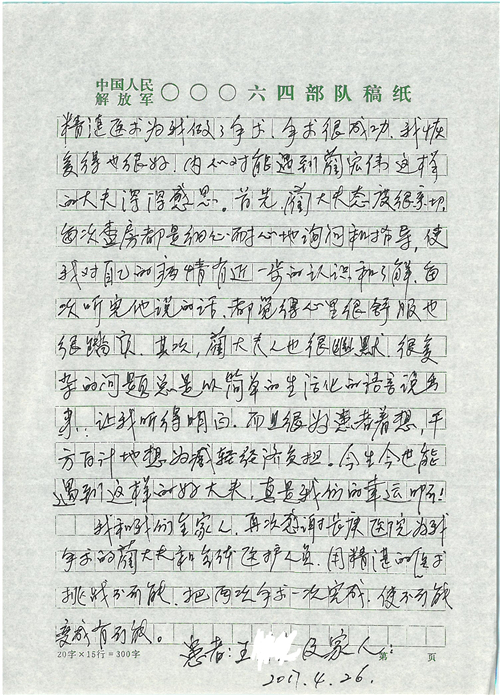 中国人民
解放军 〇〇〇六四部队稿纸
精湛医术为我做了手术，手术很成功，我恢
复得也很好，内心对能遇到蔺宏伟这样
的大夫深深感恩。首先，蔺大夫态度很亲切，
每次查房都是细心耐心地询问和指导，使
我对自己的病情有近一步的认识和了解，每
次听完他说的话，都觉得心里很舒服也
很踏实，其次，蔺大夫人也很幽默，很复
杂的问题总是以简单的生活化的语言说出
来，让我听得明白，而且很为患者着想，千
方百计地想为减轻经济负担。今生今世能
遇到这样的好大夫，真是我们的幸运啊！
我和我们全家人，再次感谢长庚医院为我
手术的蔺大夫和全体医护人员，用精湛的医术
挑战不可能，把两次手术一次完成，使不可能
变成有可能。
患者：王 及家人：
20字×15行=300字 第 页
2017.4.26.